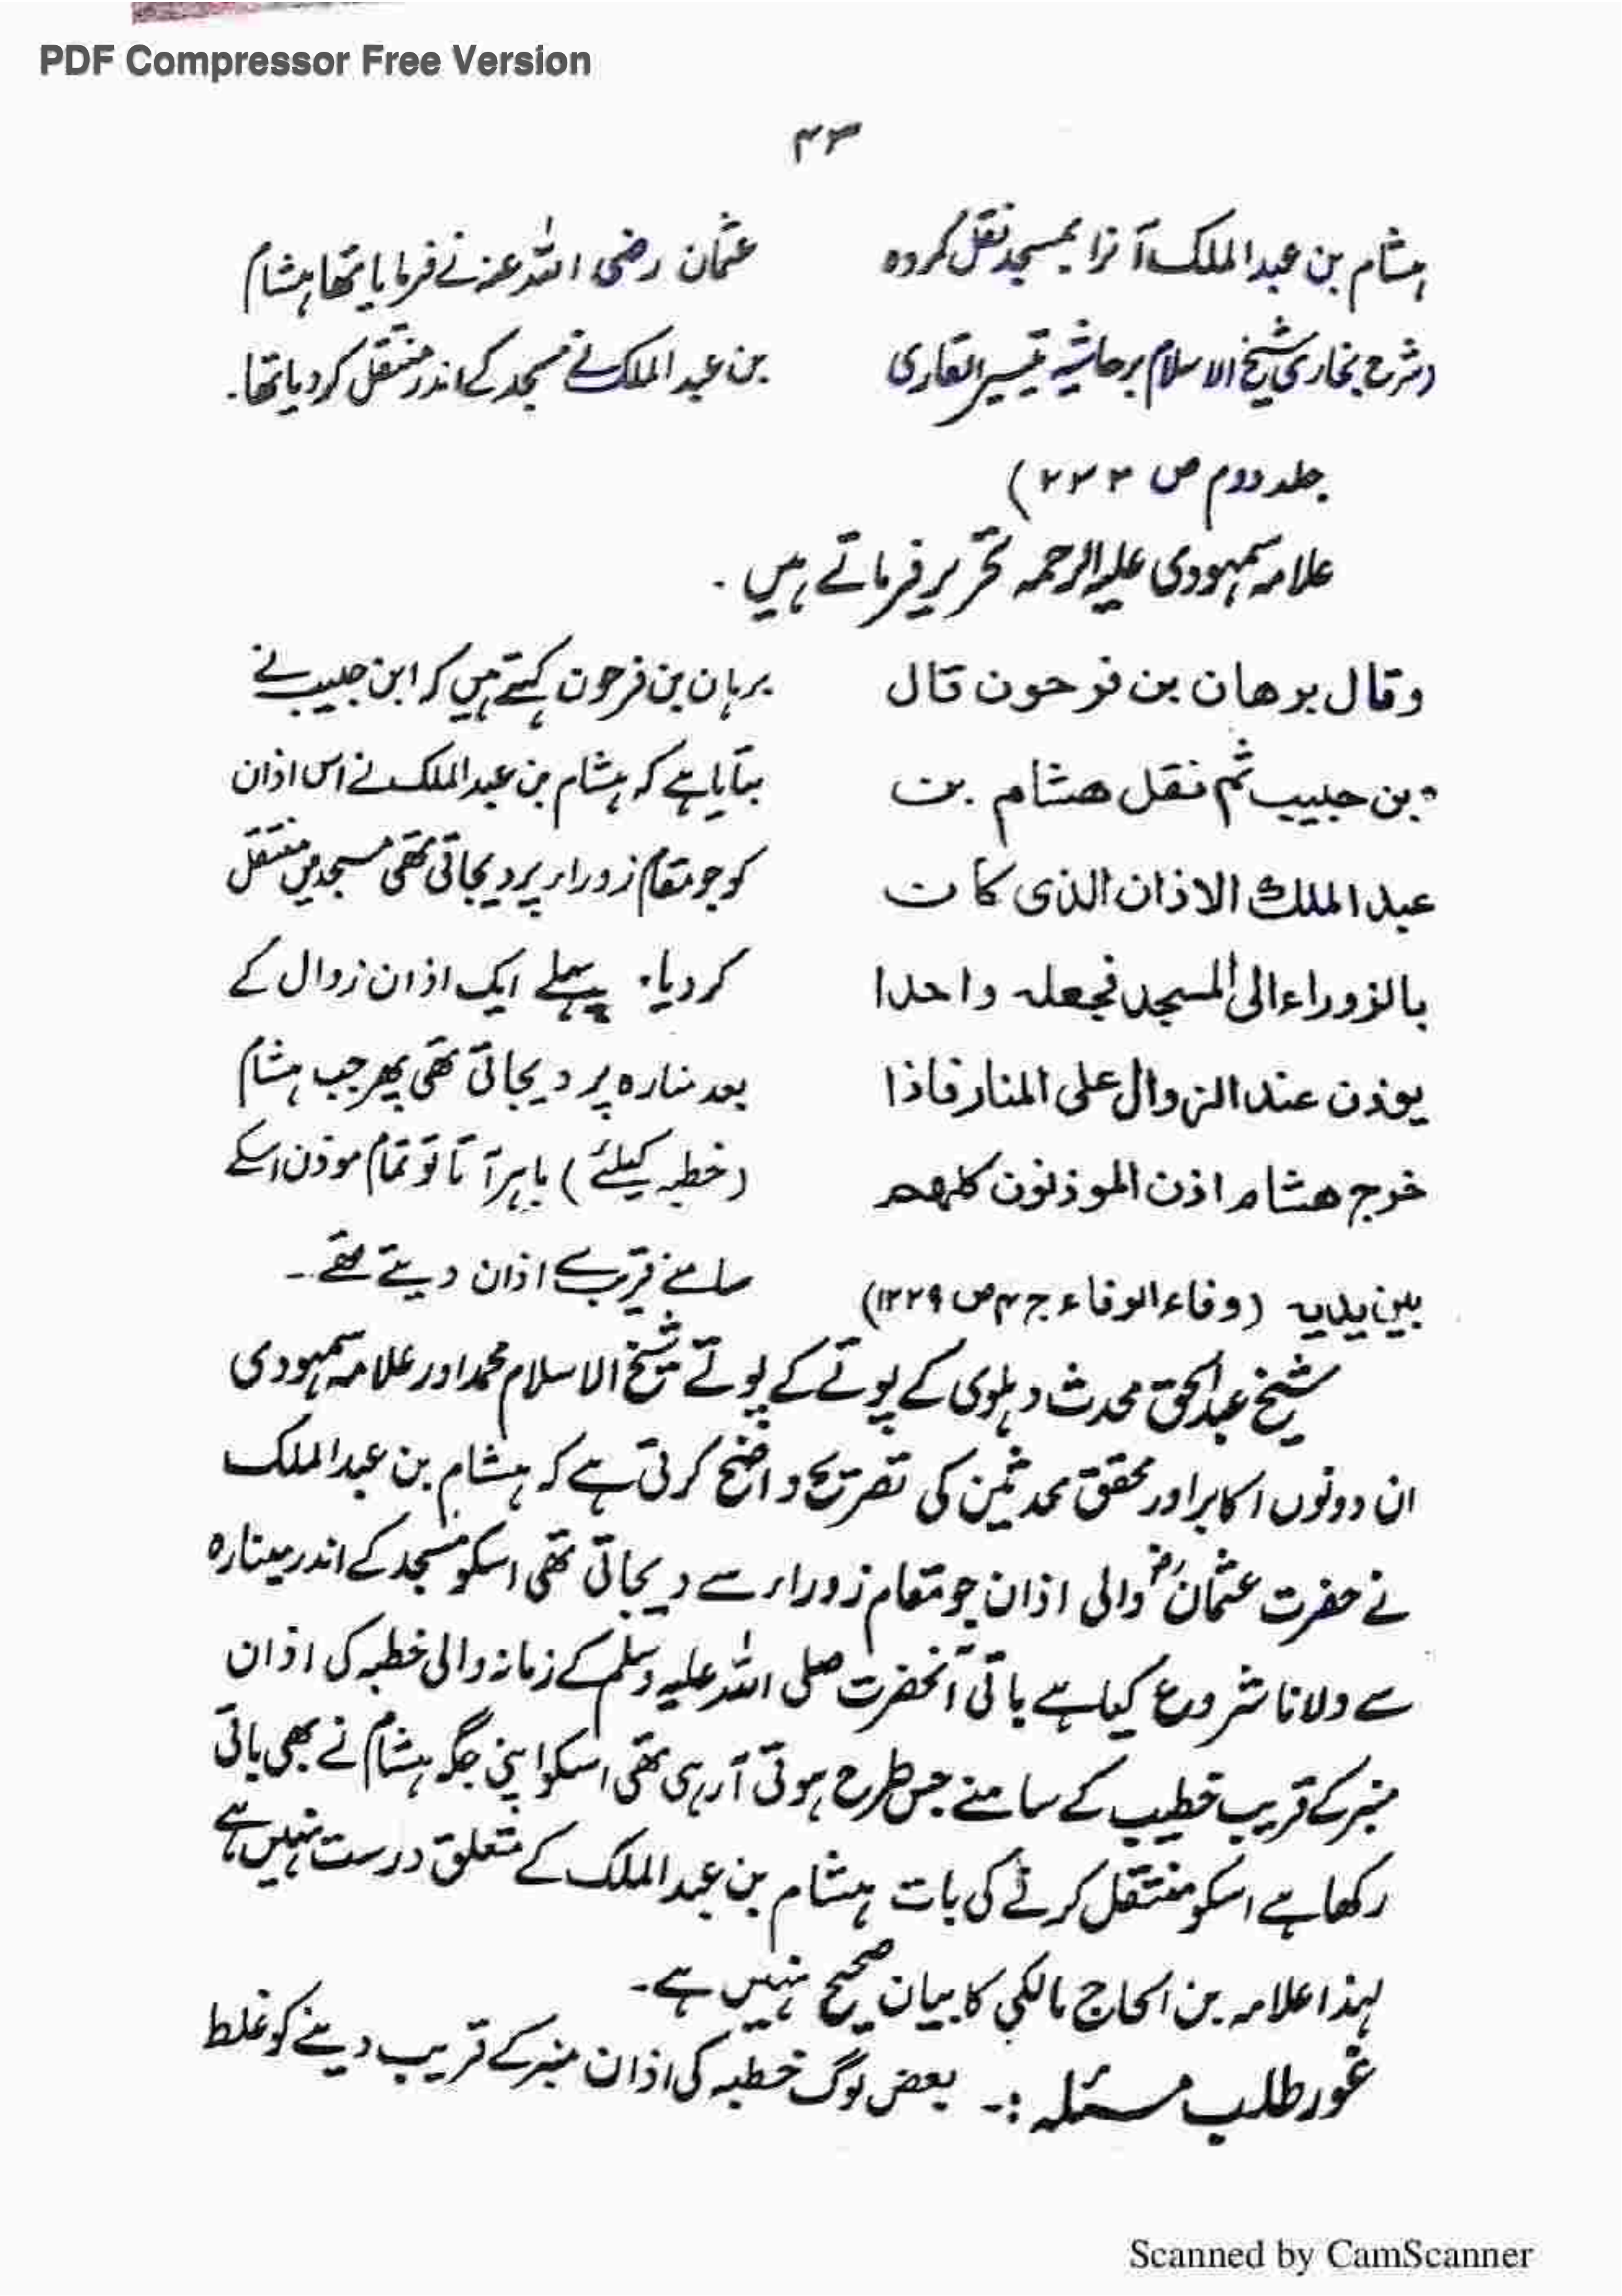 PDF Compressor Free Version
۴۳
ہشام بن عبدالملک آنرا بمسجد نقل کردہ
(شرح بخاری شیخ الاسلام برحاشیہ تیسیر القاری
جلد دوم ص ۲۲۳)
عثمان رضی اللہ عنہ نے فرمایا تھا ہشام
بن عبدالملک نے مسجد کے اندر منتقل کردیا تھا۔
علامہ سمہودی علیہ الرحمہ تحریر فرماتے ہیں۔
وقال برهان بن فرحون قال
بن حبيب ثم نقل هشام بن
عبد الملك الاذان الذى كان
بالزوراء الى المسجد فجعله واحدا
يوذن عند الزوال على المنار فاذا
خرج هشام اذن الموذنون كلهم
بين يديه (وفاء الوفاء ج ۴ ص ۱۲۲۹)
برہان بن فرحون کہتے ہیں کہ ابن حبیب نے
بتایا ہے کہ ہشام بن عبدالملک نے اس اذان
کو جو مقام زوراء پر دیجاتی تھی مسجد میں منتقل
کردیا۔ پہلے ایک اذان زوال کے
بعد منارہ پر دیجاتی تھی پھر جب ہشام
(خطبہ کیلئے) باہر آتا تو تمام موذن اسکے
سامنے قریب سے اذان دیتے تھے۔
شیخ عبدالحق محدث دہلوی کے پوتے کے پوتے شیخ الاسلام محمد اور علامہ سمہودی
ان دونوں اکابر اور محقق محدثین کی تصریح واضح کرتی ہے کہ ہشام بن عبدالملک
نے حضرت عثمانؓ والی اذان جو مقام زوراء سے دیجاتی تھی اسکو مسجد کے اندر مینارہ
سے دلانا شروع کیا ہے باقی آنحضرت صلی اللہ علیہ وسلم کے زمانہ والی خطبہ کی اذان
منبر کے قریب خطیب کے سامنے جس طرح ہوتی آرہی تھی اسکو اپنی جگہ ہشام نے بھی باقی
رکھا ہے اسکو منتقل کرنے کی بات ہشام بن عبدالملک کے متعلق درست نہیں ہے
لہذا علامہ بن الحاج مالکی کا بیان صحیح نہیں ہے۔
غور طلب مسئلہ :۔ بعض لوگ خطبہ کی اذان منبر کے قریب دینے کو غلط
Scanned by CamScanner